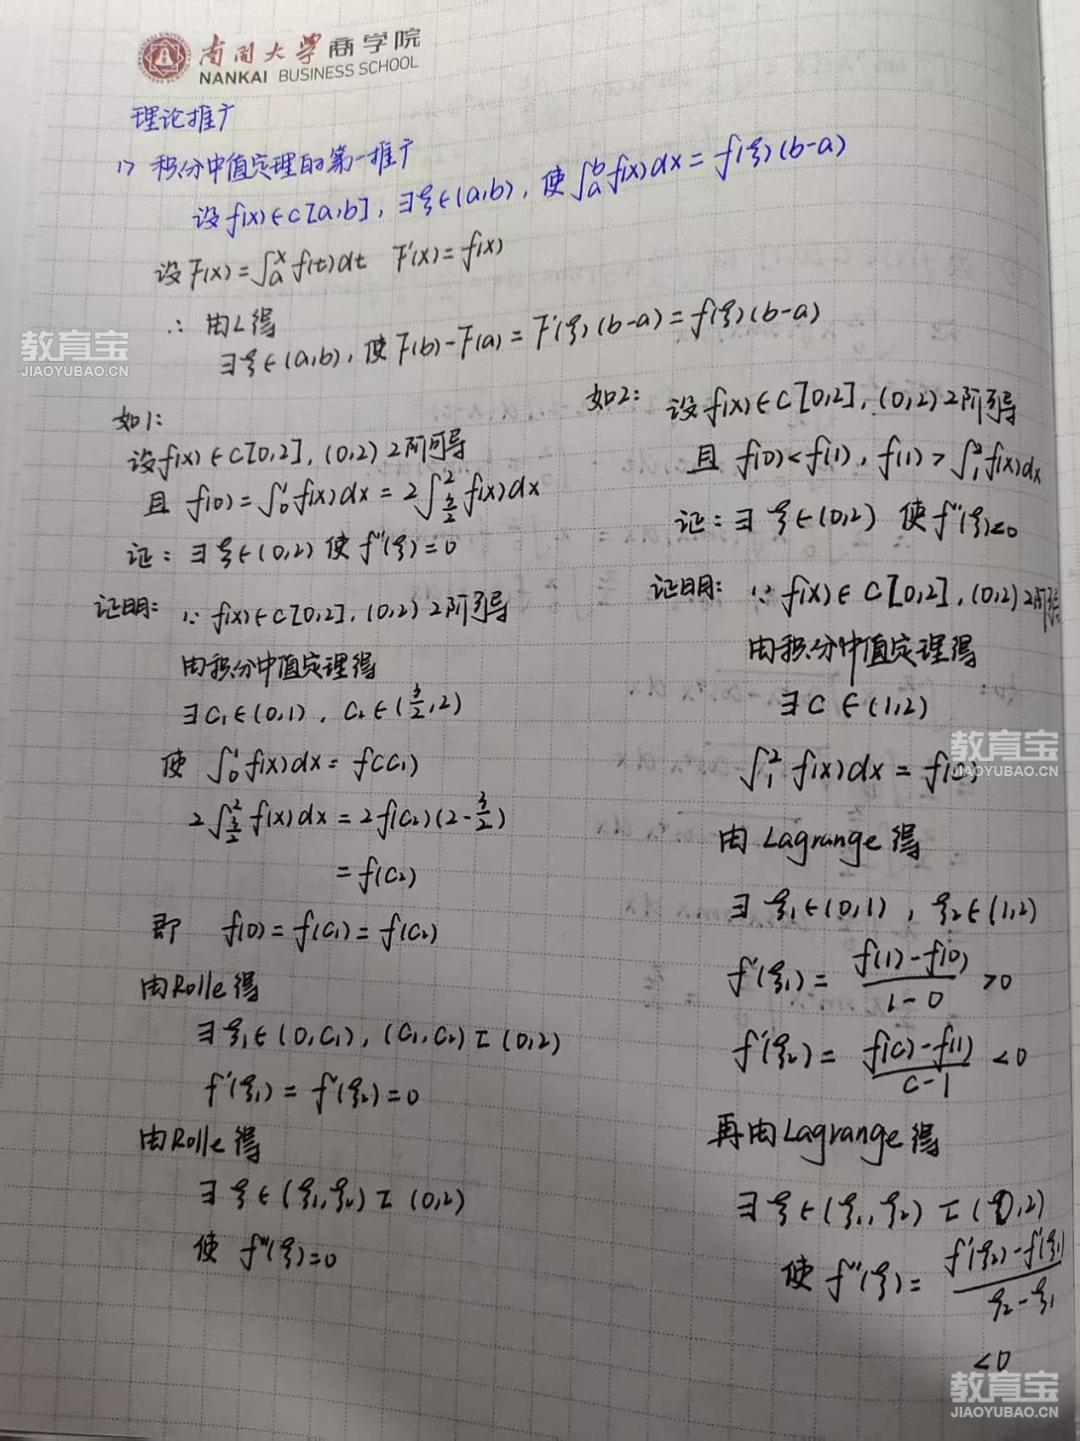 南开大学商学院
NANKAI BUSINESS SCHOOL
理论推广
1> 积分中值定理的第一推广
设f(x)∈C[a,b], ∃ξ∈(a,b), 使∫ₐᵇf(x)dx=f(ξ)(b-a)
设F(x)=∫ₐˣf(t)dt F'(x)=f(x)
∴ 由L得
∃ξ∈(a,b), 使F(b)-F(a)=F'(ξ)(b-a)=f(ξ)(b-a)
教育宝
JIAOYUBAO.CN
如1:
设f(x)∈C[0,2], (0,2)2阶可导
且 f(0)=∫₀¹f(x)dx=2∫_{3/2}^2 f(x)dx
证: ∃ξ∈(0,2)使f''(ξ)=0
证明: ∵ f(x)∈C[0,2], (0,2)2阶可导
由积分中值定理得
∃C₁∈(0,1), C₂∈(3/2,2)
使 ∫₀¹f(x)dx=f(C₁)
2∫_{3/2}^2 f(x)dx=2f(C₂)(2-3/2)
=f(C₂)
即 f(0)=f(C₁)=f(C₂)
由Rolle得
∃ξ₁∈(0,C₁), (C₁,C₂)⊂(0,2)
f'(ξ₁)=f'(ξ₂)=0
由Rolle得
∃ξ∈(ξ₁,ξ₂)⊂(0,2)
使 f''(ξ)=0
如2: 设f(x)∈C[0,2], (0,2)2阶可导
且 f(0)<f(1), f(1)>∫₁²f(x)dx
证: ∃ξ∈(0,2) 使f''(ξ)<0
证明: ∵ f(x)∈C[0,2], (0,2)2阶可导
由积分中值定理得
∃C∈(1,2)
∫₁²f(x)dx=f(C)
教育宝
JIAOYUBAO.CN
由Lagrange得
∃ξ₁∈(0,1), ξ₂∈(1,2)
f'(ξ₁)=(f(1)-f(0))/(1-0)>0
f'(ξ₂)=(f(C)-f(1))/(C-1)<0
再由Lagrange得
∃ξ∈(ξ₁,ξ₂)⊂(0,2)
使f''(ξ)=(f'(ξ₂)-f'(ξ₁))/(ξ₂-ξ₁)
<0
教育宝
JIAOYUBAO.CN